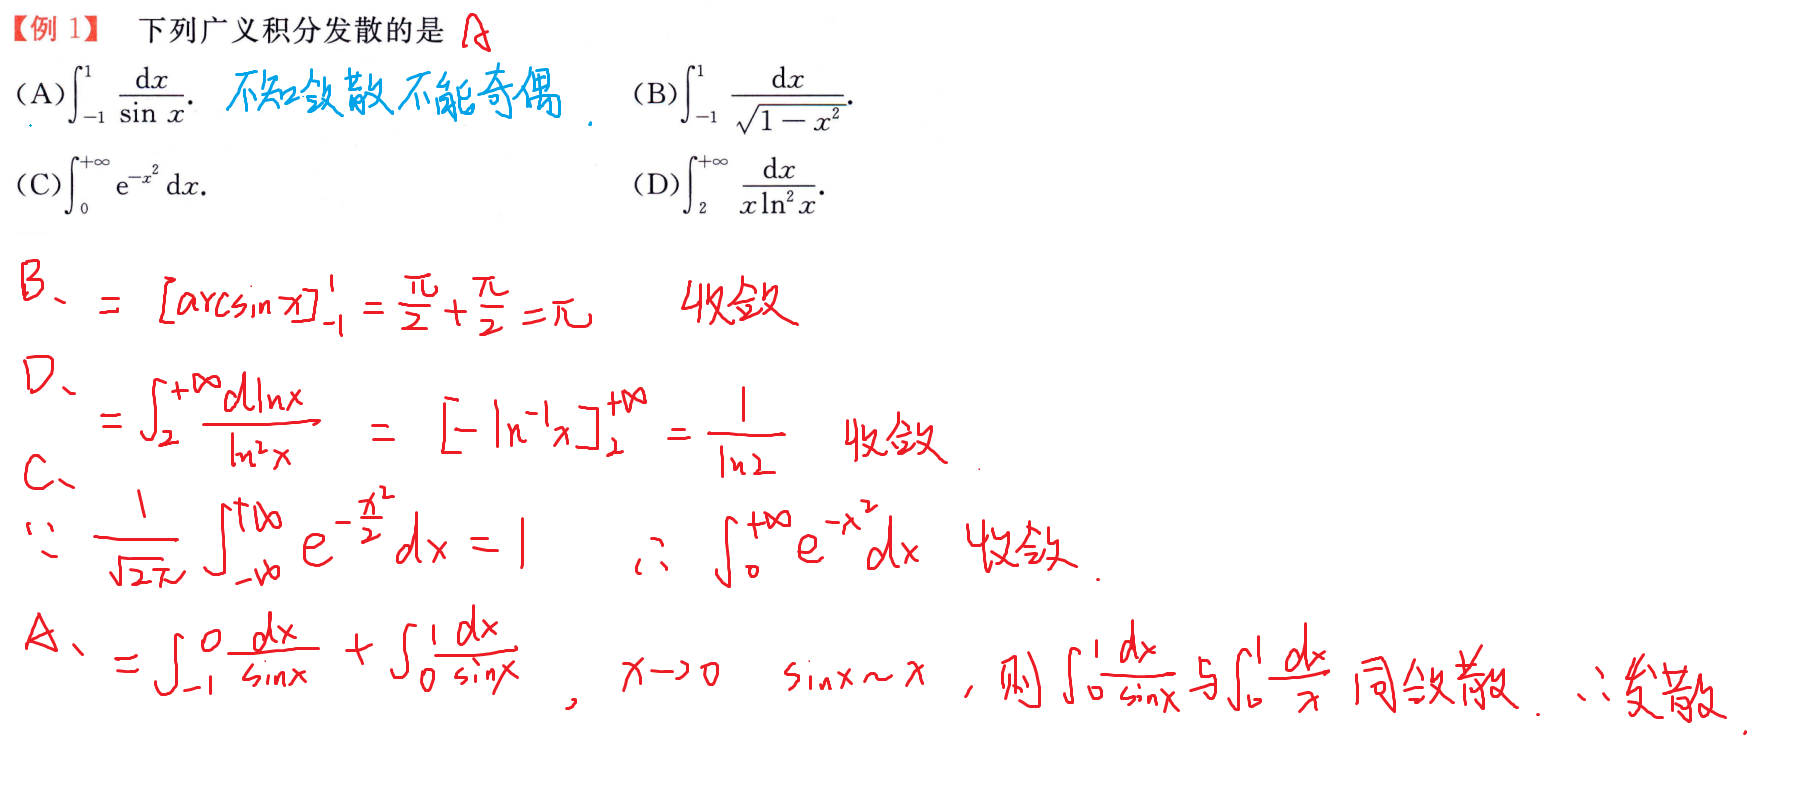 【例 1】 下列广义积分发散的是 A
(A)∫_{-1}^{1} dx/sin x. 不知敛散不能奇偶. (B)∫_{-1}^{1} dx/√(1-x²).
(C)∫_{0}^{+∞} e^{-x²} dx. (D)∫_{2}^{+∞} dx/(x ln² x).
B、 = [arcsin x]_{-1}^{1} = π/2 + π/2 = π 收敛
D、 = ∫_{2}^{+∞} dlnx/ln²x = [-ln^{-1}x]_{2}^{+∞} = 1/ln2 收敛
C、
∵ 1/√(2π) ∫_{-∞}^{+∞} e^{-x²/2} dx = 1 ∴ ∫_{0}^{+∞} e^{-x²} dx 收敛.
A、 = ∫_{-1}^{0} dx/sinx + ∫_{0}^{1} dx/sinx , x→0 sinx~x , 则 ∫_{0}^{1} dx/sinx 与 ∫_{0}^{1} dx/x 同敛散. ∴发散.